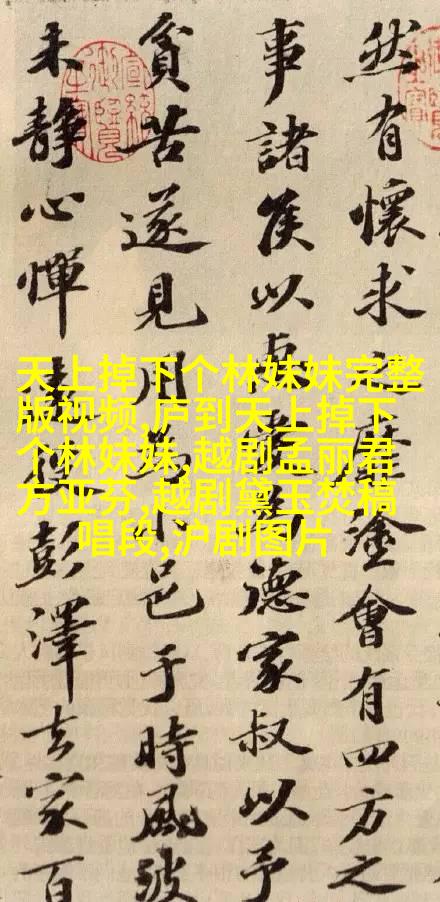 天上掉下个林妹妹完整
版视频,庐到天上掉下
个林妹妹,越剧孟丽君
方亚芬,越剧黛玉焚稿
唱段,沪剧图片
然有懷求之靡塗會有四方之
事諸侯以德家叔以予
貧苦遂見用為小邑于時風波
未靜心憚遠役彭澤去家百